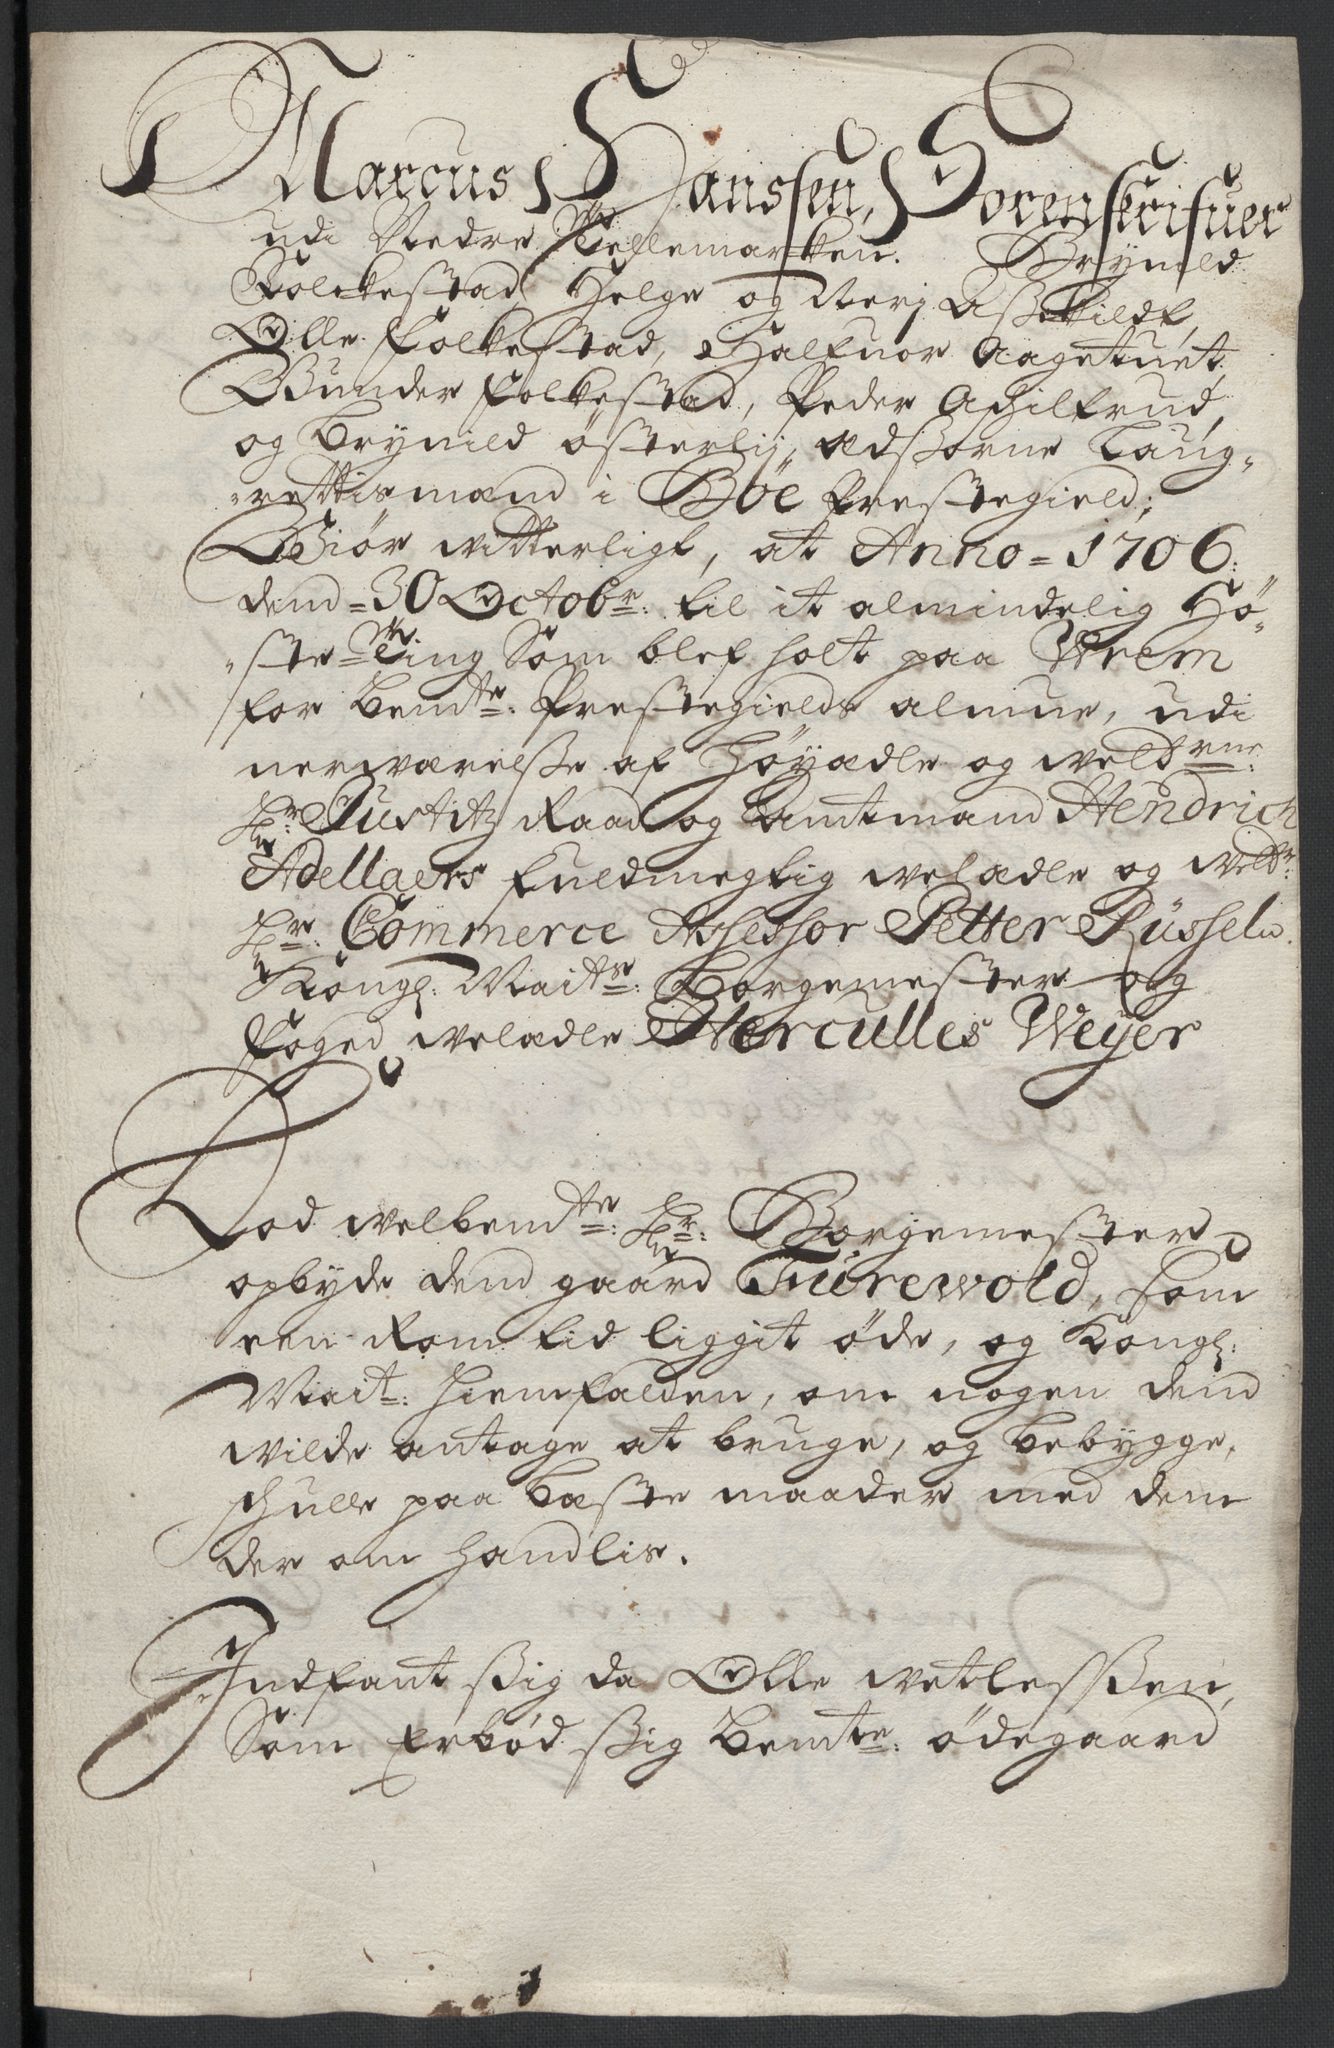 Marcus Hanssen, Sorenskrifuer
udi Nedre Tellemarken. Brynild
Folckestad, Helge og Nerj Aßekildt,
Olle Folkestad, Halfuor Aagetuet,
Gunder Folkestad, Peder Ahilfrud,
og Brynild österlij, Edsorne Laug-
rettismænd i Böe Præstegield;
Giör witterligt, at Anno = 1706:
dend = 30 Octobr: til it almindelig Hö-
ste-Ting Som blef holt paa Wrem
for bemte: Præstegields almue, udi
nerwærelße af Höyædle og welbrne:
Hr: Justitz Raad og Amtmand Hendrich
Adellaers fuldmegtig welædle og welbr:
Hr: Commerce Assessor Petter Püssel,
Kongl: Maits: Borgemester og
foged welædle Herculles Weyer
Lod welbemte: Hr: Borgemester
opbyde dend gaard Turewold, som
een Rom tid liggit öde, og Kongl:
Mait: Hiemfalden, om nogen dend
wilde antage at bruge, og bebygge,
schulle paa beste maader med dem
der om handlis.
Indfant ßig da Olle Wetleßen,
Som Erböd ßig bemte: ödegaard